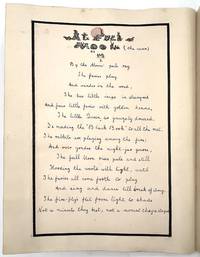 At Full
Moon (the same)
By the Moon's pale ray
The fairies play
And wander in the wood;
The two little imps in disregard
And four little fairies with golden hair,
The little Prince, so quaintly dressed,
Is reading the "Black Book" to all the rest.
The rabbits are playing among the firs;
And over yonder the night-jar
The full Moon rises pale and still
Flooding the world with light, until
The fairies all come forth to play
And sing and dance till break of day.
The fire-flys flit from light to shade
Not a minute they rest, not a moment